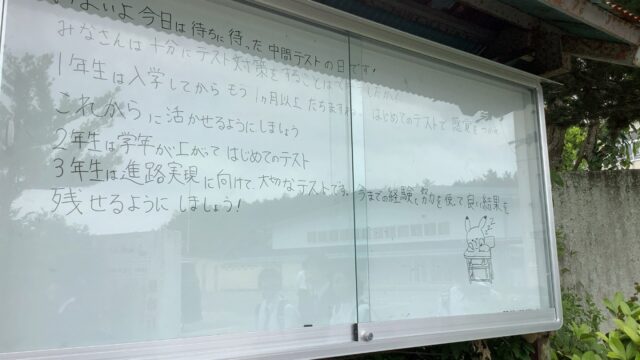 いよいよ今日は待ちに待った中間テストの日です！
みなさんは十分にテスト対策をすることはできましたか？
1年生は入学してからもう1ヵ月以上たちますね。はじめてのテストで感覚をつかみ
これからに活かせるようにしましょう
2年生は学年が上がってはじめてのテスト
3年生は進路実現に向けて大切なテストです。今までの経験と努力を使って良い結果を
残せるようにしましょう！